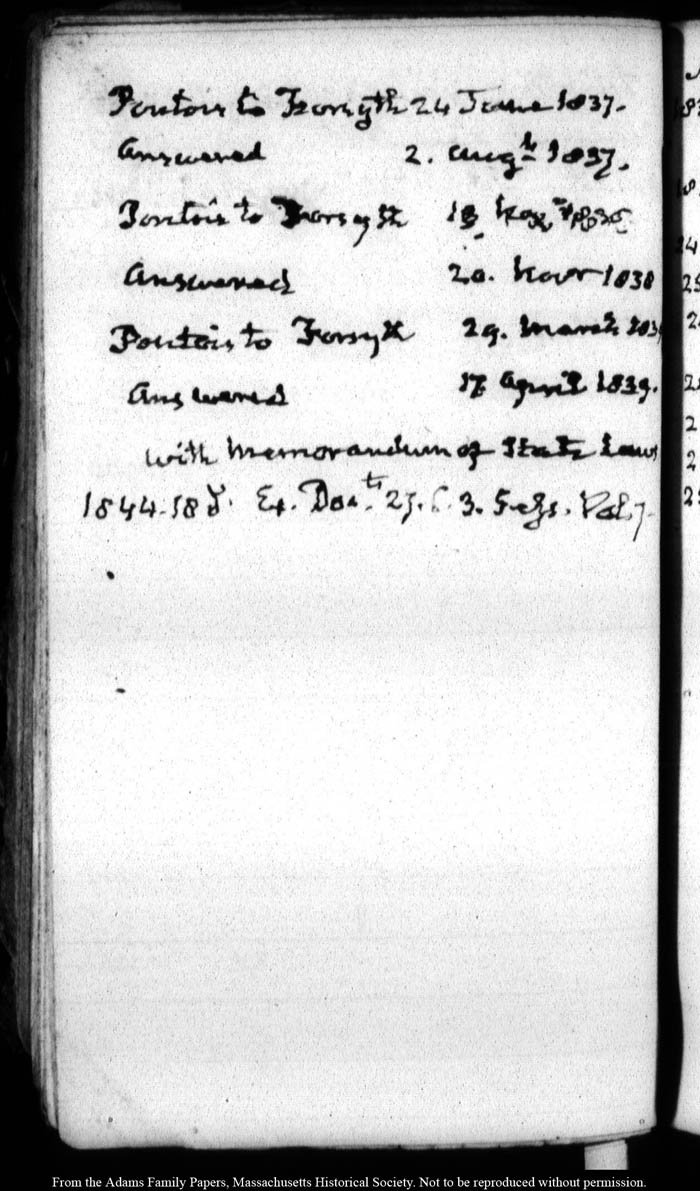 Pontois to Forsyth 24 June 1837.
Answered 2. Augt 1837.
Pontois to Forsyth 13 Novr 1838
Answered 20. Novr 1838
Pontois to Forsyth 29. March 1839
Answered 17 April 1839.
with Memorandum of State Laws
1844. Ex. Doct 25. C. 3. S.
From the Adams Family Papers, Massachusetts Historical Society. Not to be reproduced without permission.